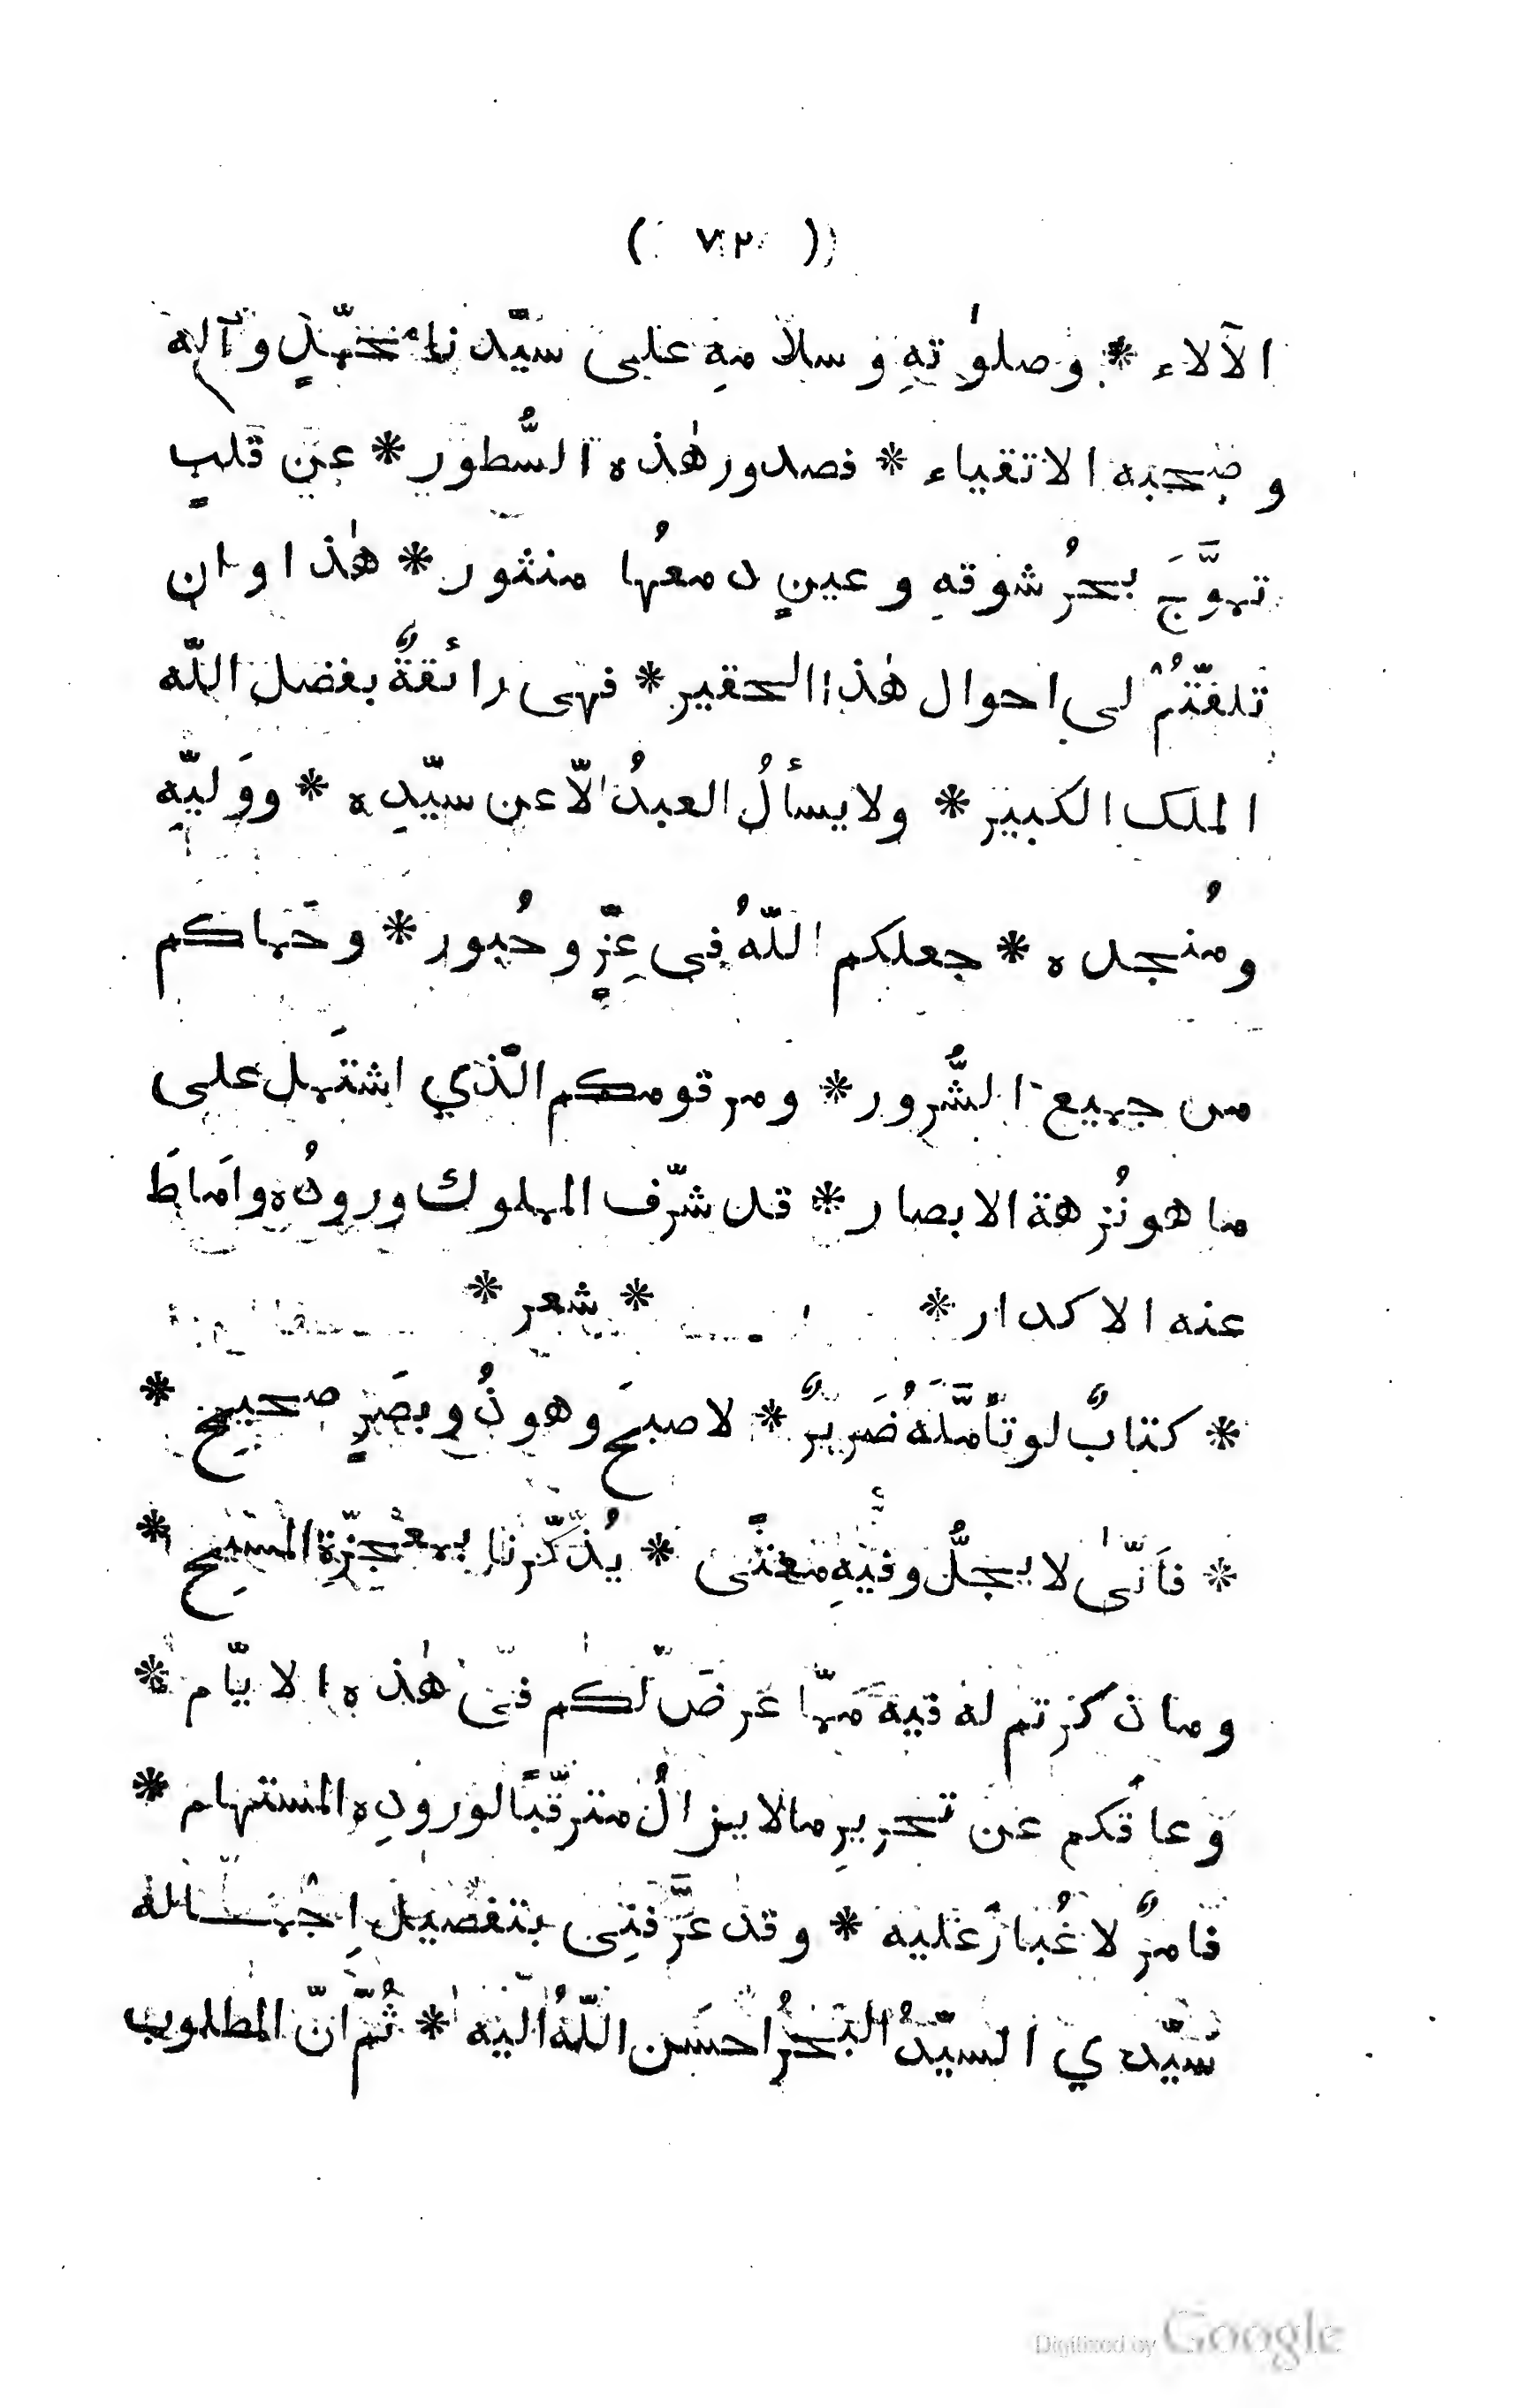 ( ٧٢ )
الآلاء * وصلوٰتهِ وسلامهِ على سيّدنا محمّدٍ وآله
وصحبه الاتقياء * فصدور هٰذه السُّطور * عن قلبٍ
تموَّجَ بحرُ شوقهِ وعينٍ دمعُها منثور * هٰذا وان
تلفّتُّم لى احوال هٰذا الحقير * فهى رائقةٌ بفضل اللّه
الملك الكبير * ولا يسألُ العبدُ الّا عن سيّدِه * ووَليّه
ومُنجده * جعلكم اللّهُ فى عِزٍّ وحُبور * وحَماكم
من جميع الشُّرور * ومرقومكم الّذي اشتمَل على
ما هو نُزهة الابصار * قد شرّف المملوك ورودُه واَماطَ
عنه الاكدار * * شعر *
* كتابٌ لو تأمَّلَهُ ضَريرٌ * لاصبحَ وهو ذُو بصَرٍ صحيح *
* فاَنّىٰ لا يجلُّ وفيهِ معنًى * يُذكّرنا بمعْجِزَةِ المسيح *
وما ذكرتم له فيه مّما عَرضَ لكم فى هٰذه الايّام *
وعاقَكم عن تحريرِ ما لا يزالُ مترقّبًا لورودِه المستهام *
فامرٌ لا غُبارَ عليه * وقد عَرَّفنِى بتفصيل اِجْمـاله
سيّدي السيّدُ البَحرُ احسَن اللّهُ اليه * ثُمّ انّ المطلوب
Digitized by Google